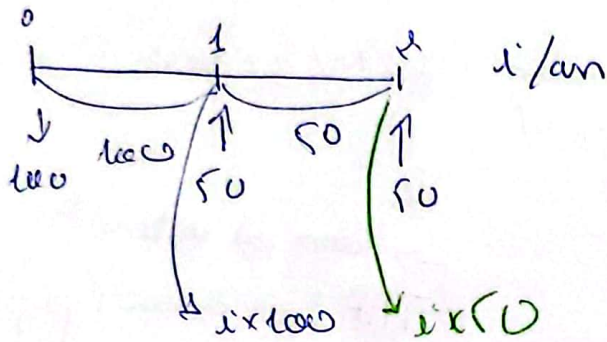 0 1 2 i/an
100 50
100 50 50
i×100 i×50